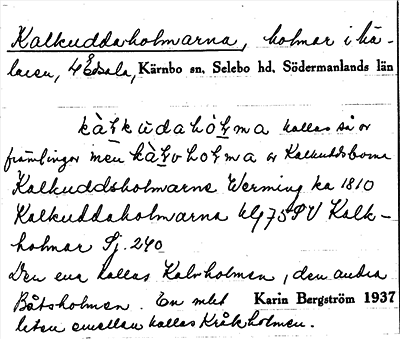 Kalkuddaholmarna, holmar i Mä-
laren, 4 Edsala, Kärnbo sn, Selebo hd, Södermanlands län
kàlkùdahòlma kallas så av
främlingar men kàlvholma av Kalkuddsborna
Kalkuddsholmarne Werming ka 1810
Kalkuddaholmarna blg 75 SV Kalk-
holmar Sj. 240
Den ena kallas Kalvholmen, den andra
Båtsholmen. En mkt Karin Bergström 1937
liten emellan kallas Kråkholmen.